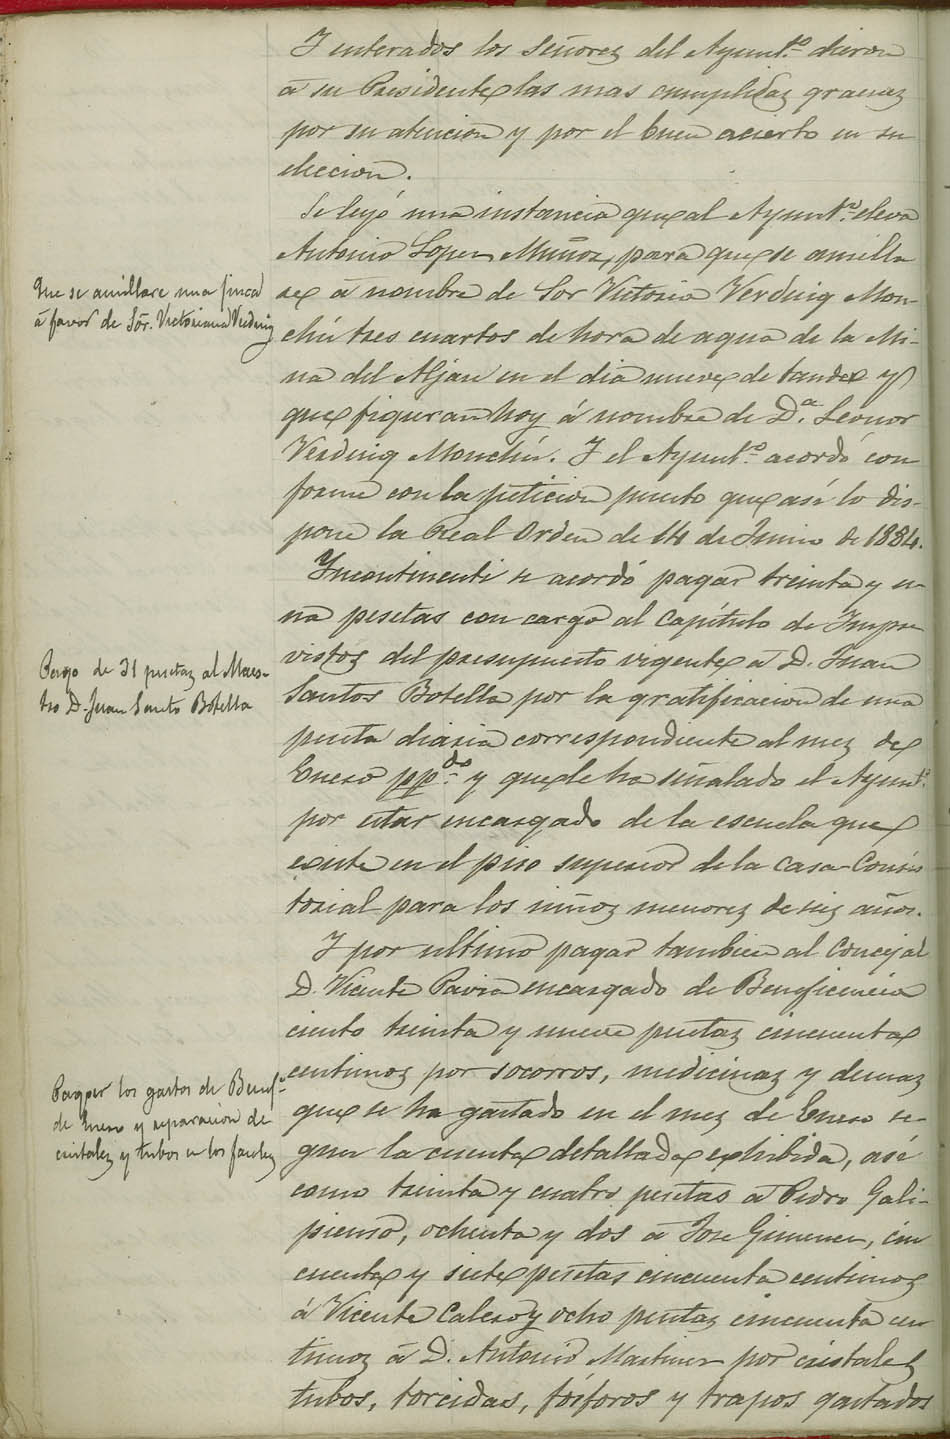 Y enterados los Señores del Ayunt.º dieron
á su Presidente las mas cumplidas gracias
por su atencion y por el buen acierto en su
eleccion.
Se leyó una instancia que al Ayunt.º eleva
Antonio Lopez Muñoz, para que se amilla
Que se amillare una finca
á favor de Sor. Victoriana Verduig
re á nombre de Sor Victoria Verduig Mon-
chú tres cuartos de hora de agua de la Mi-
na del Aljau en el dia nueve de tanda y
que figuran hoy á nombre de D.ª Leonor
Verduig Monchú. Y el Ayunt.º acordó con
forme con la peticion puesto que así lo dis-
pone la Real Orden de 14 de Junio de 1884.
Incontinenti se acordó pagar treinta y u-
na pesetas con cargo al Capítulo de Impre
Pago de 31 pesetas al Maes-
tro D. Juan Santo Botella
vistos del presupuesto vigente á D. Juan
Santos Botella por la gratificacion de una
peseta diaria correspondiente al mes de
Enero pp.do y que le ha señalado el Ayunt.º
por estar encargado de la escuela que
existe en el piso superior de la Casa-Consis
torial para los niños menores de seis años.
Y por ultimo pagar tambien al Concejal
D. Vicente Pavia encargado de Beneficencia
ciento treinta y nueve pesetas cincuenta
Pagar los gastos de Benef.ª
de Enero y reparacion de
cristales y tubos en los faroles
centimos por socorros, medicinas y demas
que se ha gastado en el mes de Enero se-
gun la cuenta detallada exhibida, así
como treinta y cuatro pesetas á Pedro Gali-
pienso, ochenta y dos á Jose Gimenez, cin
cuenta y siete pesetas cincuenta centimos
á Vicente Calero y ocho pesetas cincuenta cen
timos á D. Antonio Martinez por cristales
tubos, torcidas, fósforos y trapos gastados